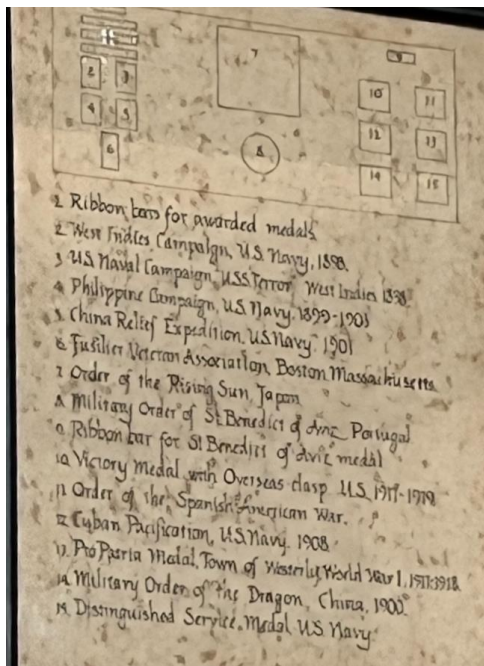 2 3
4 5
6
7
8
9
10 11
12 13
14 15
1 Ribbon bars for awarded medals
2 West Indies Campaign, U.S. Navy, 1898.
3 U.S. Naval Campaign, "USS Terror", West Indies 1898
4 Philippine Campaign, U.S. Navy. 1899-1903
5 China Relief Expedition, U.S. Navy. 1901
6 Fusilier Veteran Association, Boston Massachusetts
7 Order of the Rising Sun, Japan
8 Military Order of St Benedict of Aviz Portugal
9 Ribbon bar for St Benedict of Aviz medal
10 Victory Medal with Overseas clasp U.S. 1917-1919
11 Order of the Spanish American War.
12 Cuban Pacification, U.S. Navy. 1908
13 Pro Patria Medal, Town of Westerly, World War I, 1917-1918
14 Military Order of the Dragon, China, 1900.
15 Distinguished Service Medal U.S. Navy